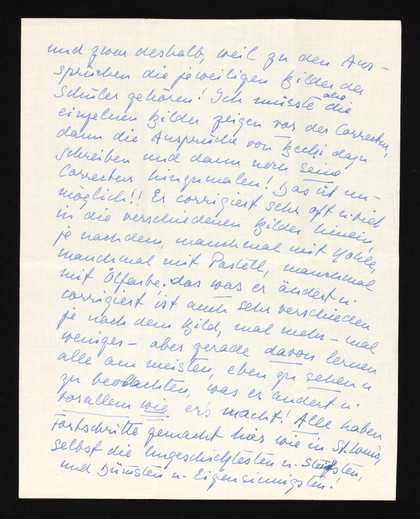 und zwar deshalb, weil zu den Aus-
sprüchen die jeweiligen Bilder der
Schüler gehören! Ich müsste also die
einzelnen Bilder zeigen vor der Correctur,
dann die Aussprüche von Becki dazu
schreiben und dann noch seine
Correctur hinzumalen! Das ist un-
möglich!! Er corrigiert sehr oft u. viel
in die verschiedenen Bilder hinein,
je nachdem, manchmal mit Kohle,
manchmal mit Pastell, manchmal
mit Ölfarbe. Das was er ändert u.
corrigiert ist auch sehr verschieden
je nach dem Bild, mal mehr – mal
weniger – aber gerade davon lernen
alle am meisten, eben zu sehen u.
zu beobachten, was er ändert u.
vor allem wie er's macht! Alle haben
Fortschritte gemacht hier wie in St. Louis,
selbst die Ungeschicktesten u.
und Dümsten u. Eigensinnigsten!